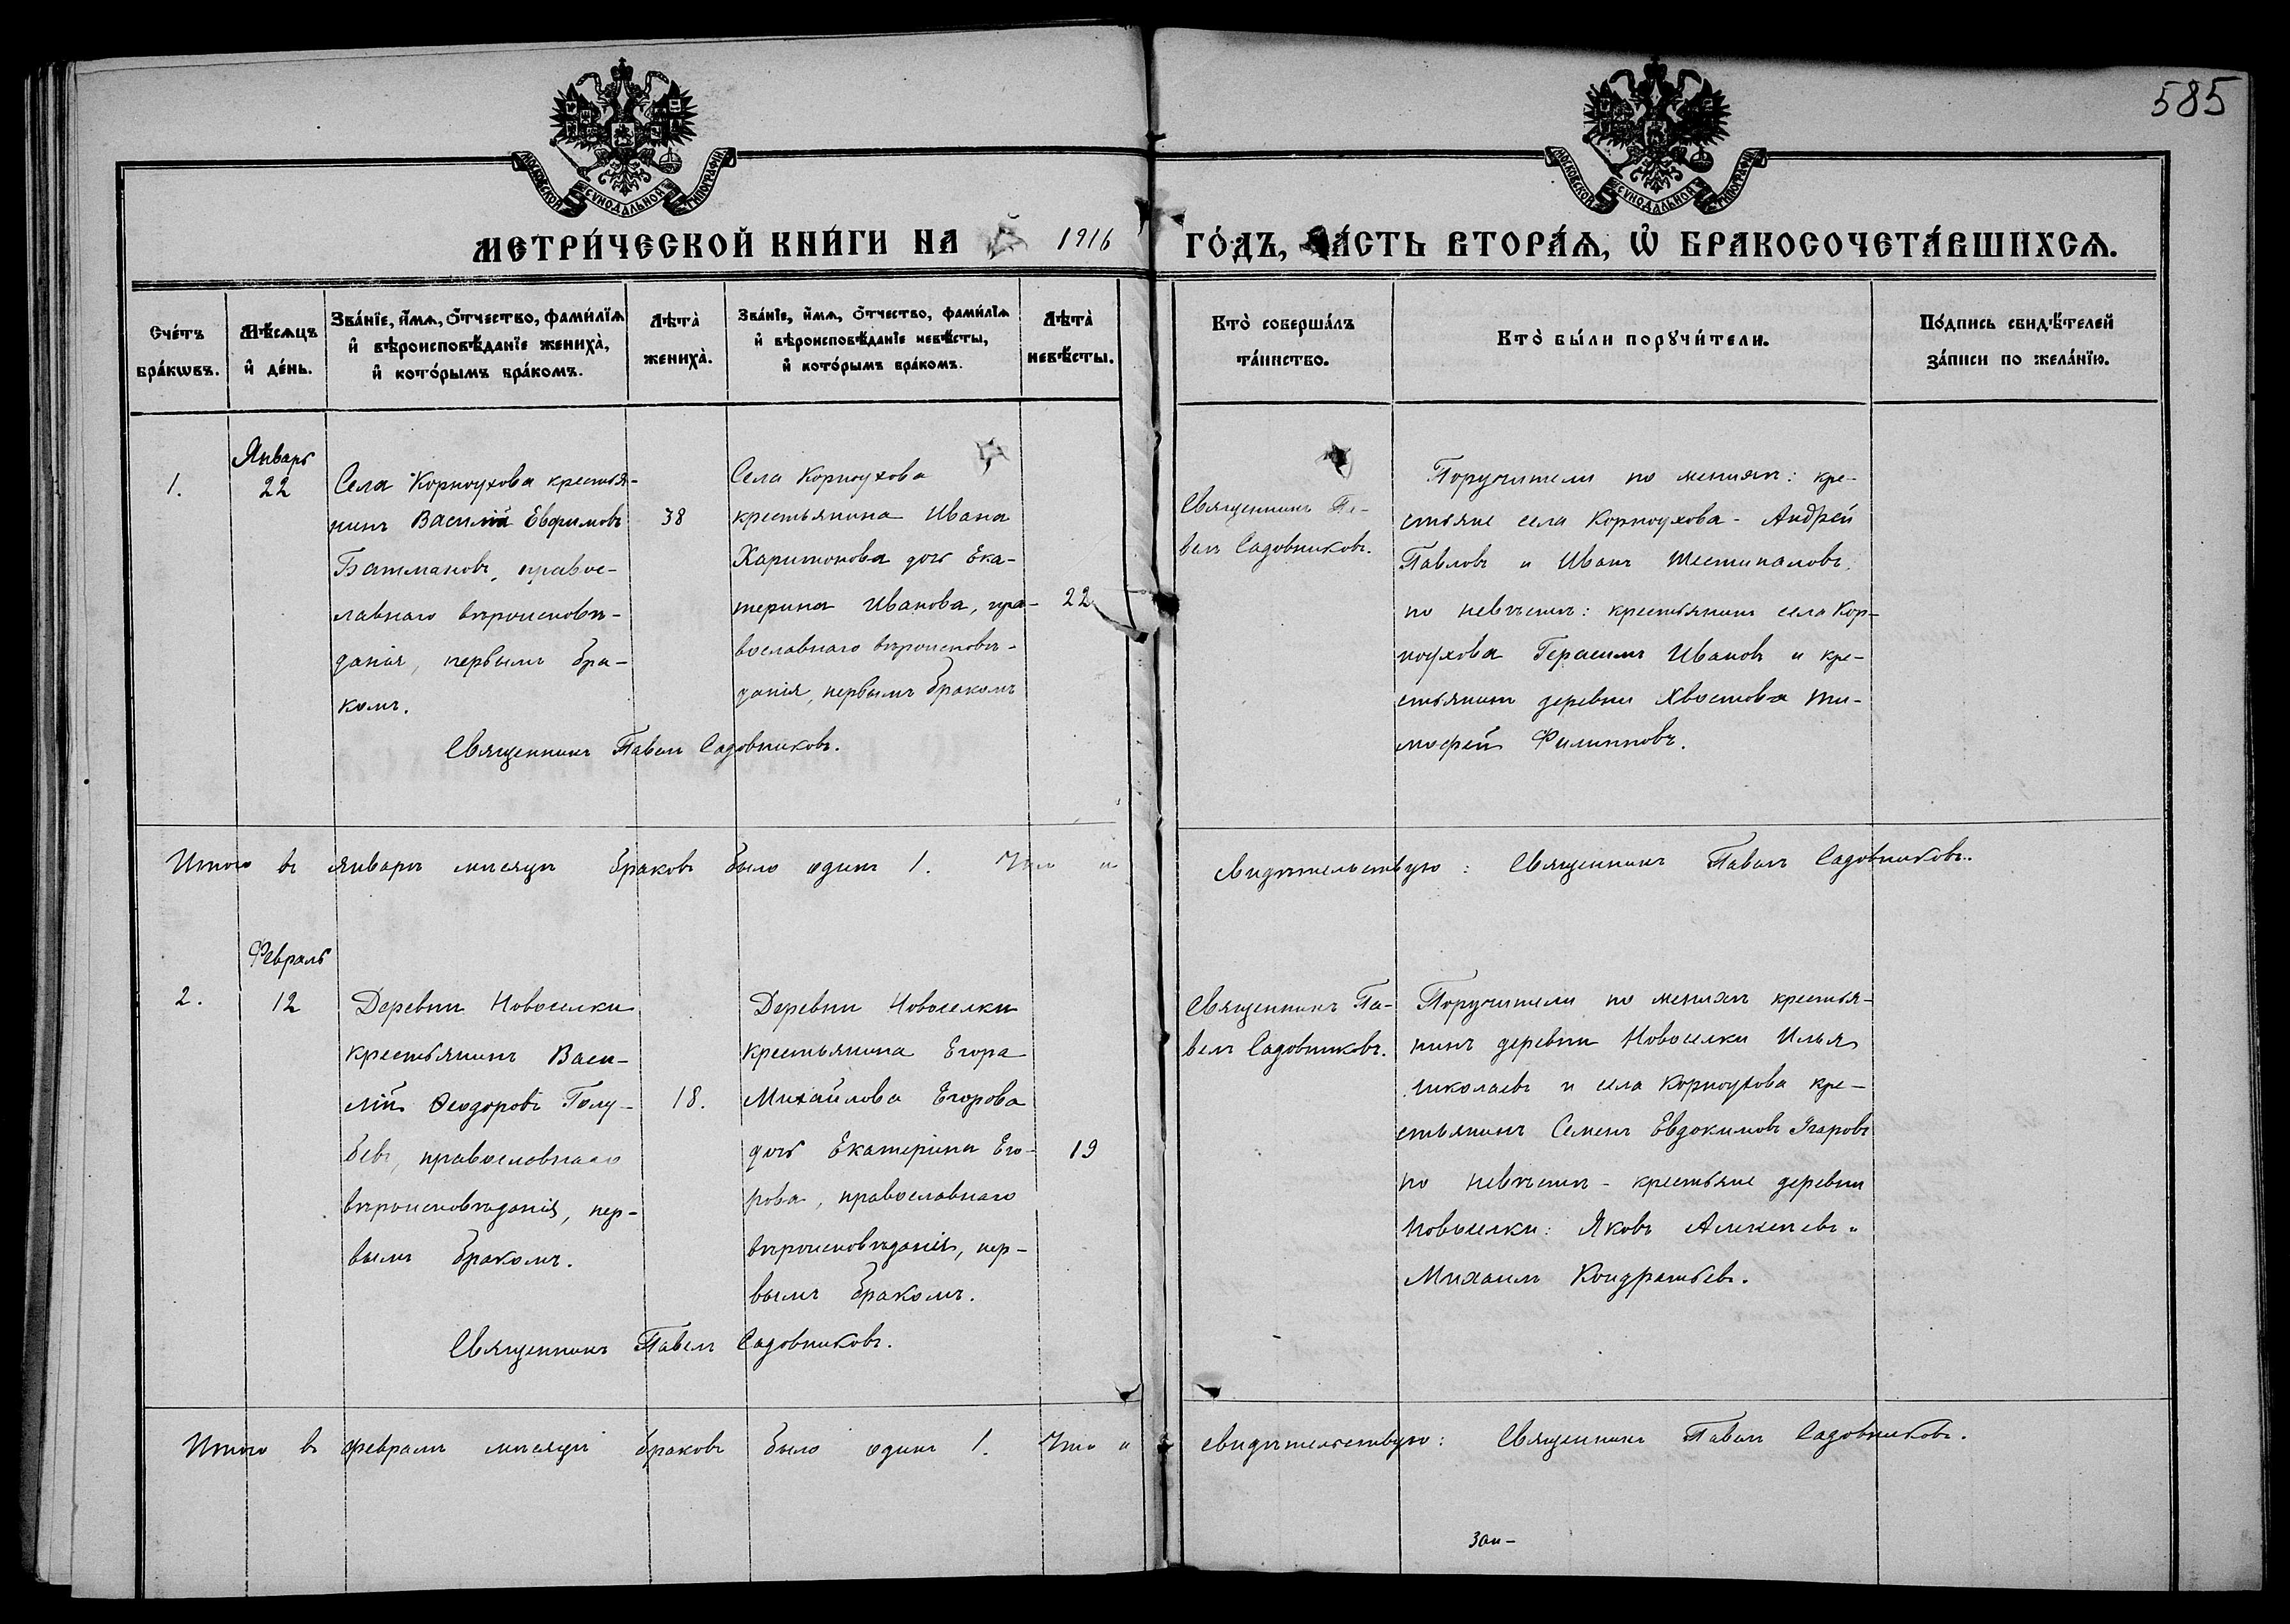 585
МОСКОВСКОЙ СѴНОДАЛЬНОЙ ТИПОГРАФІИ
МОСКОВСКОЙ СѴНОДАЛЬНОЙ ТИПОГРАФІИ
МЕТРИ́ЧЕСКОЙ КНИ́ГИ НА 1916 ГО́ДЪ, ЧА́СТЬ ВТОРА́Ѧ, Ѡ҆ БРАКОСОЧЕТА́ВШИХСѦ.
Сче́тъ
бра́кѡвъ.
Мѣ́сѧцъ
и҆ де́нь.
Зва́нїе, и҆́мѧ, ѻ҆́тчество, фами́лїѧ
и҆ вѣроисповѣ́данїе женихà,
и҆ кото́рымъ бра́комъ.
Лѣ́та
женихà.
Зва́нїе, и҆́мѧ, ѻ҆́тчество, фами́лїѧ
и҆ вѣроисповѣ́данїе невѣ́сты,
и҆ кото́рымъ бра́комъ.
Лѣ́та
невѣ́сты.
Кто̀ соверша́лъ
та́инство.
Кто̀ бы́ли порꙋчи́тели.
По́дпись свидѣ́телей
за́писи по жела́нїю.
1.
Январь
22
Села Корноухова крестья-
нинъ Василій Евфимовъ
Батмановъ, право-
славнаго вѣроисповѣ-
данія, первымъ бра-
комъ.
38
Села Корноухова
крестьянина Ивана
Харитонова дочь Ека-
терина Иванова, пра-
вославнаго вѣроисповѣ-
данія, первымъ бракомъ
22
Священникъ Па-
велъ Садовниковъ.
Поручители по женихѣ: кре-
стьяне села Корноухова - Андрей
Павловъ и Иванъ Шестипаловъ
по невѣстѣ: крестьянинъ села Кор-
ноухова Герасимъ Ивановъ и кре-
стьянинъ деревни Хвостова Ти-
мофей Филипповъ.
Священникъ Павелъ Садовниковъ.
Итого въ январѣ мѣсяцѣ браковъ было одинъ 1. Что и свидѣтельствую: Священникъ Павелъ Садовниковъ.
2.
Февраль
12
Деревни Новоселки
крестьянинъ Васи-
лій Ѳеодоровъ Голу-
бевъ, православнаго
вѣроисповѣданія, пер-
вымъ бракомъ.
18.
Деревни Новоселки
крестьянина Егора
Михайлова Егорова
дочь Екатерина Его-
рова, православнаго
вѣроисповѣданія, пер-
вымъ бракомъ.
19
Священникъ Па-
велъ Садовниковъ.
Поручители по женихѣ крестья-
нинъ деревни Новоселки Илья
Николаевъ и села Корноухова кре-
стьянинъ Семенъ Евдокимовъ
по невѣстѣ - крестьяне деревни
Новоселки: Яковъ Алексѣевъ и
Михаилъ Кондратьевъ.
Священникъ Павелъ Садовниковъ.
Итого въ февралѣ мѣсяцѣ браковъ было одинъ 1. Что и свидѣтельствую: Священникъ Павелъ Садовниковъ.